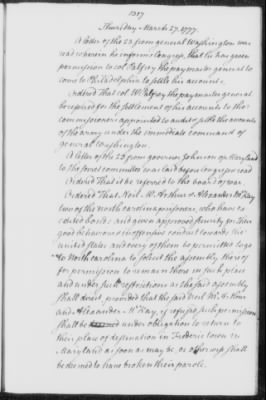 1317
Thursday March 27. 1777.
A letter of the 23 from general Washington was
read wherein he informs Congress, that he has given
permission to col. Palfrey the paymaster general to
come to Philadelphia to settle his account.
Ordered That col. W Palfrey the paymaster general
be referred for the settlement of his accounts to the
commissioners appointed to audit & settle the accounts
of the army under the immediate command of
general Washington.
A letter of the 23 from governor Johnson of Maryland
to the secret committee was laid before Congress & read
Ordered That it be referred to the board of war.
Ordered That Neil Mc Arthur & Alexander McKay
two of the north carolina prisoners, who have ex
ecuted bonds and given approved security for their
good behaviour & inoffensive conduct towards the
united states and every of them be permitted to go
to North carolina to solicit the assembly there of
for permission to remain there in such place
and under such restrictions as the said assembly
shall direct, provided that the said Neil Mc Arthur
and Alexander McKay, if refused such permission
shall be under obligation to return to
their place of destination in Frederic town in
Maryland as soon as may be, or otherwise shall
be deemed to have broken their parole.